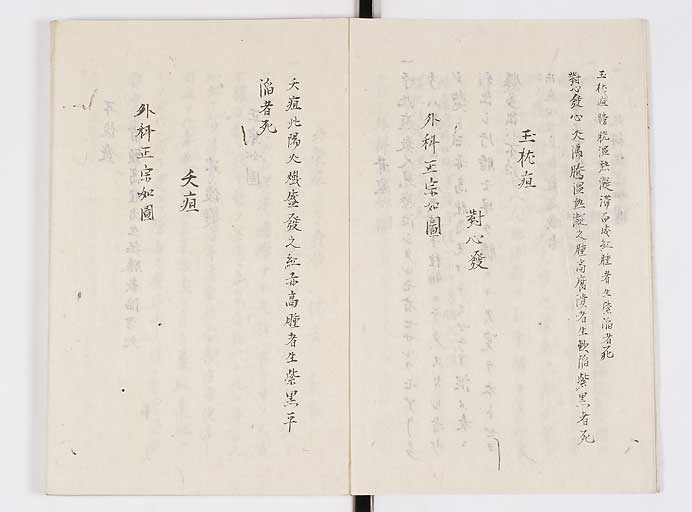 玉枕疽膀胱湿热凝滞而成紅腫者生紫陷者死
對心發心火隅騰湿热凝之腫高腐潰者生軟陷紫黒者死
玉枕疽
對心發
外科正宗如圖
夭疽此陽火熾盛發之紅赤高腫者生紫黒平
陷者死
夭疽
外科正宗如圖